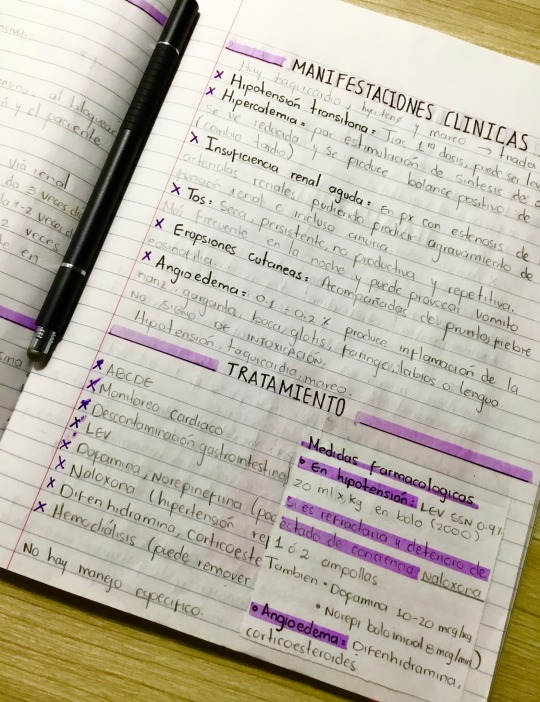 al bloquear
y el paciente
via renal
veces
MANIFESTACIONES CLINICAS
Hay taquicardia, y mareo → triada
× Hipotensión transitoria: Tras 1ra dosis, puede ser
× Hipercalemia: por estimulación de sintesis de
se ve reducida y se produce balance positivo de
(cambio tardio)
× Insuficiencia renal aguda: En px con estenosis de
arterias renales pudiendo producir agravamiento de
función renal e incluso anuria.
× Tos: Seca, persistente, no productiva y repetitiva.
Más frecuente en la noche y puede provocar vomito
× Erupsiones cutaneas: Acompañadas del prurito, fiebre
eosinofilia.
× Angioedema: 0.1 - 0.2 % produce inflamación de la
nariz, garganta, boca, glotis, faringe, labios o lengua.
No signo DE INTOXICACIÓN.
Hipotensión, taquicardia, mareo.
TRATAMIENTO
× ABCDE
× Monitoreo cardiaco
× Descontaminación gastrointestinal
× LEV
× Dopamina, Norepinefrina
× Naloxona (hipertensión
× Difenhidramina, corticoeste
× Hemodiálisis (puede remover
No hay manejo especifico.
Medidas farmacologicas
• En hipotensión: LEV SSN 0.9%
20 ml x kg en bolo (2000)
Si es refractaria y deterioro de
estado de conciencia Naloxona
1 ó 2 ampollas
Tambien • Dopamina 10-20 mcg/kg
• Norepi bolo inicial 8 mcg/min)
• Angioedema: Difenhidramina,
corticoesteroides